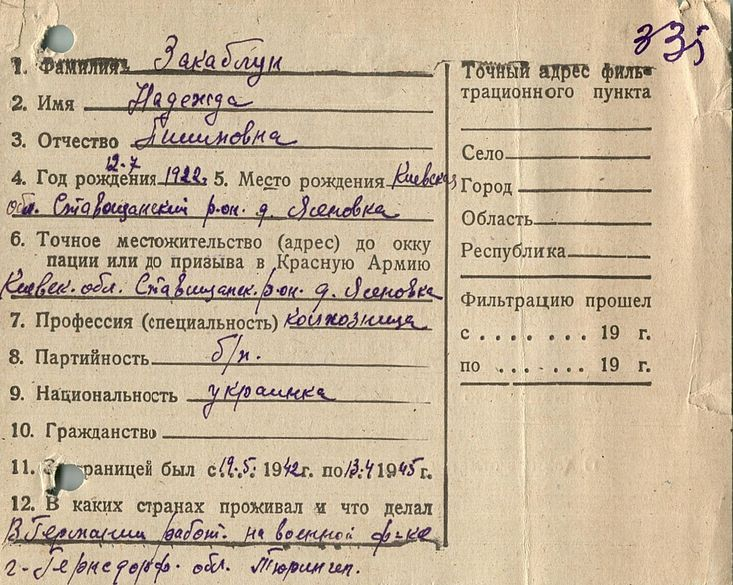 335
1. Фамилия Закаблун
2. Имя Надежда
3. Отчество
12-7
4. Год рождения 1922. 5. Место рождения Киевская
обл. Ставищанский р.он. д. Ясеновка
6. Точное местожительство (адрес) до окку
пации или до призыва в Красную Армию
Киевск. обл. Ставищанск. р.он. д. Ясеновка
7. Профессия (специальность) колхозница
8. Партийность б/п.
9. Национальность украинка
10. Гражданство
11. границей был с 19.5. 1942 г. по 13.4 1945 г.
12. В каких странах проживал и что делал
В Германии работ. на военной ф-ке
г. обл. Тюринген.
Точный адрес филь-
трационного пункта
Село
Город
Область
Республика
Фильтрацию прошел
с . . . . . . 19 г.
по . . . . . 19 г.